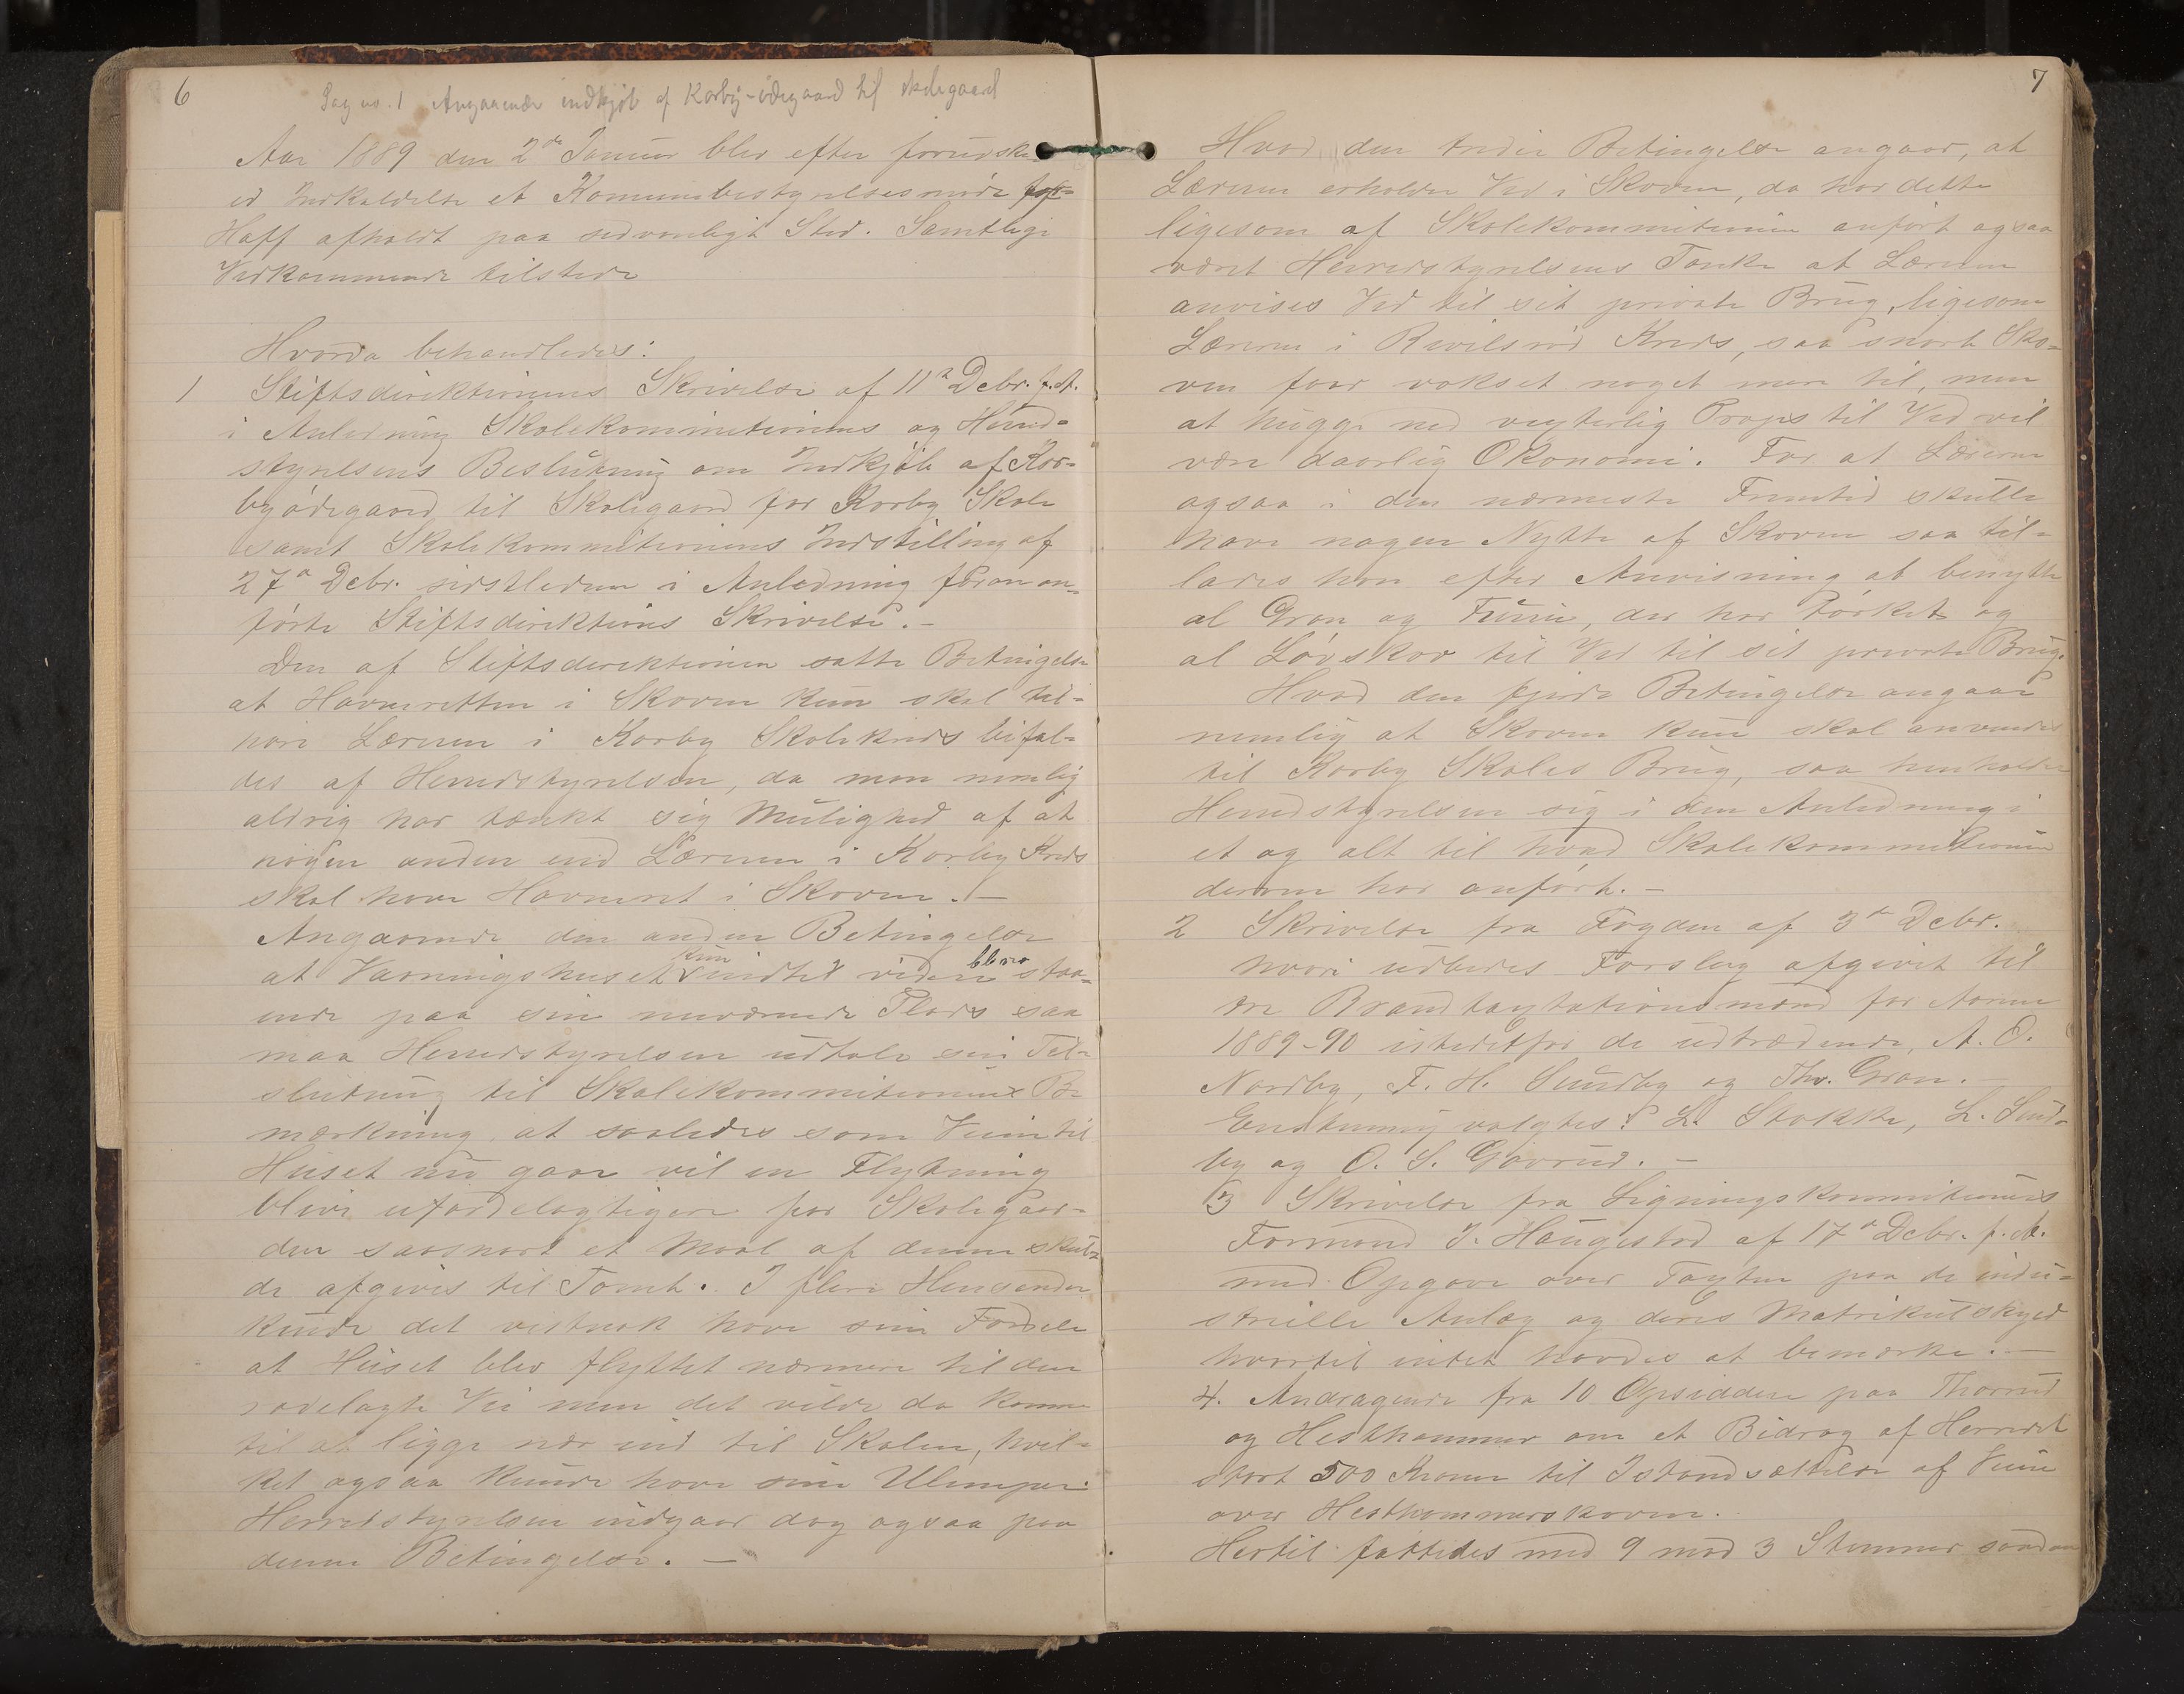 6
Sag no. 1 Angaaende indkjøb af Korby-ødegaard til skolegaard
Aar 1889 den 2de Januar blev efter forudske-
et Indkaldelse et Komunebestyrelsesmøde for
Haff afholdt paa sedvanligt Sted. Samtlige
Vedkommende tilstede
Hvorda behandledes:
1 Stiftsdirektionens Skrivelse af 11te Debr. f. A.
i Anledning Skolekommitionens og Herred-
styrelsens Beslutning om Indkjøb af Kor-
byødegaard til Skolegaard for Korby Skole
samt Skolekommitionens Indstilling af
27de Debr. sidstleden i Anledning foran an-
førte Stiftsdirektions Skrivelse. -
Den af Stiftsdirektionen satte Betingelse
at Havneretten i Skoven kun skal til-
høre Læreren i Korby Skolekreds bifal-
des af Herredstyrelsen, da man nemlig
aldrig har tænkt sig Mulighed af at
nogen anden end Læreren i Korby Kreds
skal have Havneret i Skoven. -
Angaaende den anden Betingelse
at Vaaningshuset kun indtil videre bliver staa-
ende paa sin nuværende Plads saa
maa Herredstyrelsen udtale sin Til-
slutning til Skolekommitionens Be-
mærkning, at saaledes som Veien til
Huset nu gaar vil en Flytning
blive ufordelagtigere for Skolegaar-
den saasnart et Maal af denne skul-
de afgives til Tomt. I flere Henseender
kunde det vistnok have sine Fordele
at Huset blev flyttet nærmere til den
rodelagte Vei men det vilde da komme
til at ligge nær ind til Skolen, hvil-
ket ogsaa kunde have sine Ulemper.
Herredstyrelsen indgaar dog ogsaa paa
denne Betingelse. -
7
Hvad den tredie Betingelse angaar, at
Læreren erholder Ved i Skoven, da har dette
ligesom af Skolekommitionen anført ogsaa
været Herredstyrelsens Tanke at Læreren
anvises Ved til sit private Brug, ligesom
Læreren i Revilsrød Kreds, saa snart Sko-
ven faar vokset noget mere til, men
at hugge ned vegterlig Props til Ved vil
være daarlig Økonomi. For at Læreren
ogsaa i den nærmeste Fremtid skulle
have nogen Nytte af Skoven saa til-
lades han efter Anvisning at benytte
al Gran og Furu, der har tørket og
al Løvskov til Ved til sit private Brug.
Hvad den fjerde Betingelse angaar
nemlig at Skoven kun skal anvendes
til Korby Skoles Brug, saa henholder
Herredstyrelsen sig i den Anledning i
et og alt til hvad Skolekommitionen
derom har anført. -
2 Skrivelse fra Fogden af 3de Debr.
hvori udbedes Forslag afgivet til
tre Brandtaxtationsmænd for Aarene
1889-90 istedetfor de udtrædende, A. O.
Nordby, F. H. Sundby og Thv. Gran. -
Enstemmig valgtes: L. Stokke, L. Sund-
by og O. S. Gaarud. -
3 Skrivelse fra Ligningskommitionens
Formand J. Haugestad af 17de Debr. f. A.
med Opgave over Taxten paa de indu-
strielle Anlæg og deres Matrikulskyld
hvortil intet havdes at bemærke. -
4. Andragende fra 10 Opsiddere paa Thorrud
og Hesthammer om et Bidrag af Herredet
stort 500 Kroner til Istandsættelse af Veien
over Hesthammerskoven.
Hertil fattedes med 9 mod 3 Stemmer saadan